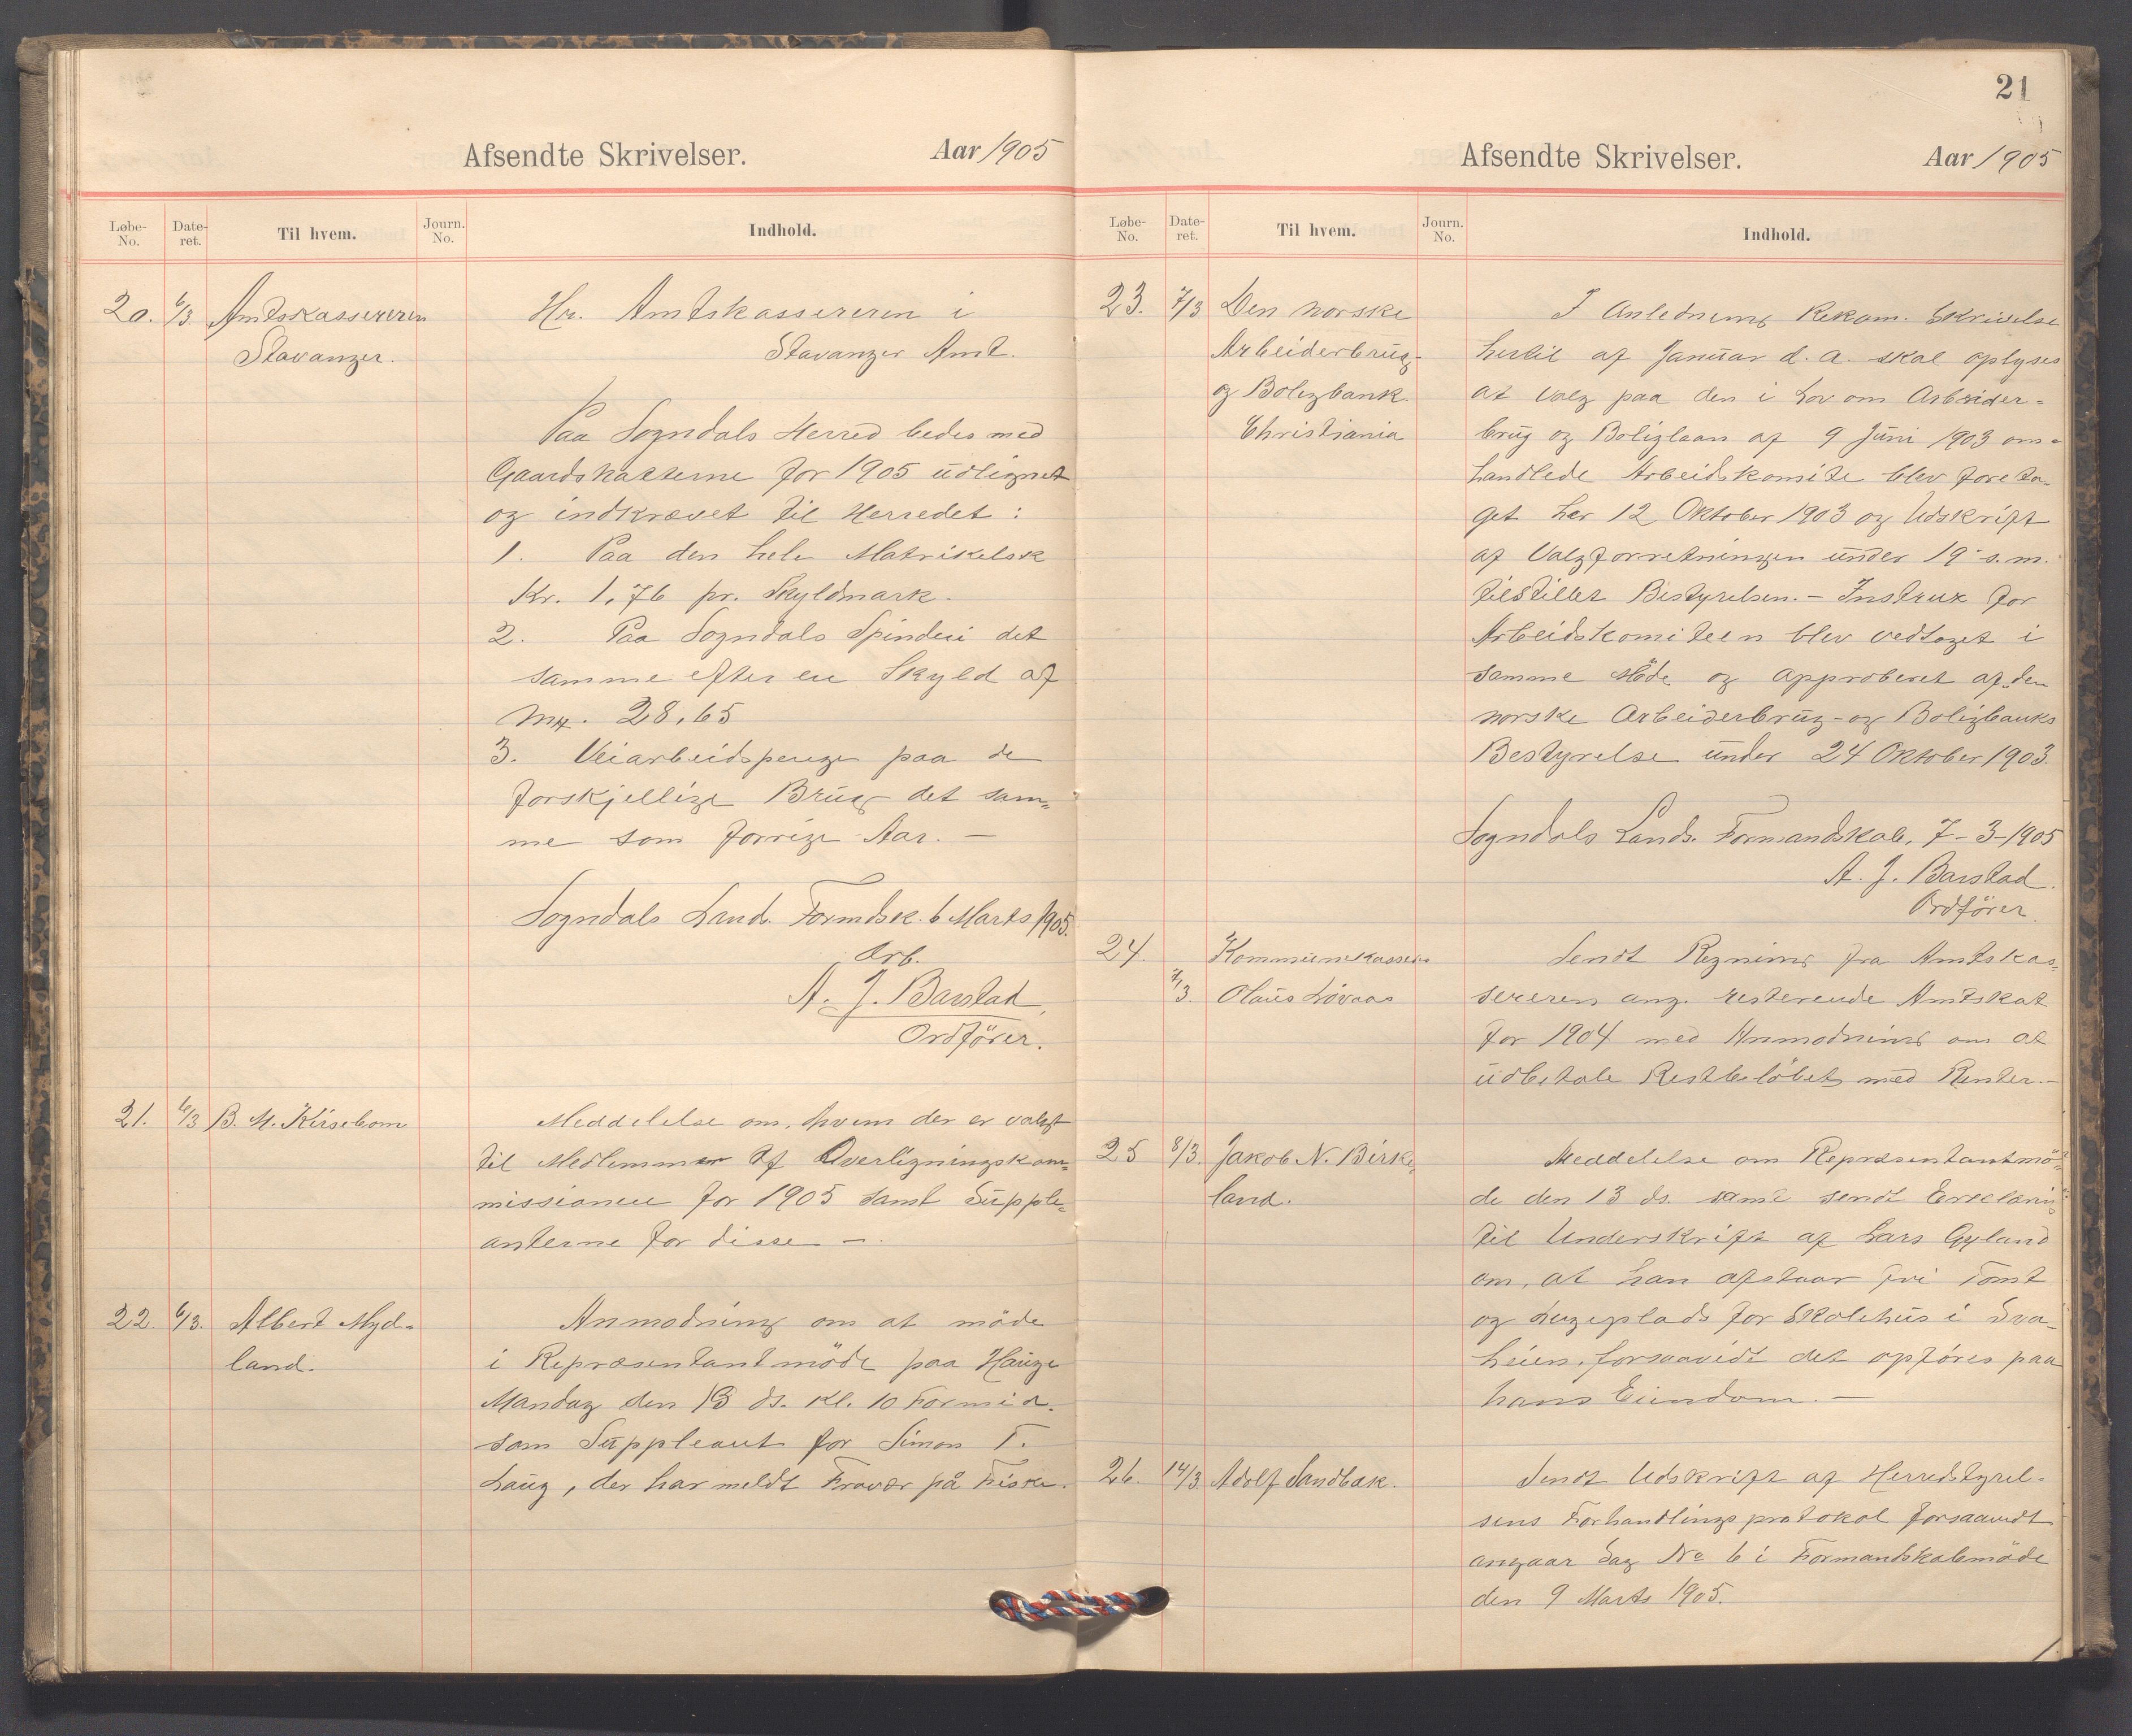 Afsendte Skrivelser.
Aar 1905
Løbe-No.
Date-ret.
Til hvem.
Journ. No.
Indhold.
20. 6/3 Amtskassereren
Stavanger.
Hr. Amtskassereren i
Stavanger Amt.
Paa Sogndals Herred bedes med
Gaardskatterne for 1905 udlignet
og indkrævet til Herredet:
1. Paa den hele Matrikelsk
Kr. 1,76 pr. Skyldmark.
2. Paa Sogndals Spinderi det
samme efter en Skyld af
Mk. 28,65
3. Veiarbeidspenge paa de
forskjellige Brug det sam=
me som forrige Aar. —
Sogndals Land. Formdsk. 6 Marts 1905.
Arb.
A. J. Barstad,
Ordfører.
21. 6/3 B. M. Kirsebom
Meddelelse om, hvem der er valgt
til Medlemmer af Overligningskom=
missionen for 1905 samt Supple=
anterne for disse —.
22. 6/3. Albert Myd=
land.
Anmodning om at møde
i Repræsentantmøde paa Hauge
Mandag den 13 ds. Kl. 10 Formid.
som Suppleant for Simon T.
Laug, der har meldt Fravær på Fiske.
21
Afsendte Skrivelser.
Aar 1905
Løbe-No.
Date-ret.
Til hvem.
Journ. No.
Indhold.
23. 7/3 Den norske
Arbeiderbrug-
og Boligbank.
Christiania
I Anledning Rekom. Skrivelse
hertil af Januar d. A. skal oplyses
at Valg paa den i Lov om Arbeider=
brug og Boliglaan af 9 Juni 1903 om=
handlede Arbeidskomite blev foreta-
get her 12 Oktober 1903 og Udskrift
af Valgforretningen under 19 s. m.
tilstillet Bestyrelsen. — Instrux for
Arbeidskomiteen blev vedtaget i
samme Møde og approberet af "den
norske Arbeiderbrug- og Boligbanks
Bestyrelse under 24 Oktober 1903.
Sogndals Lands. Formandskab, 7-3-1905
A. J. Barstad.
Ordfører.
24. Kommunekasserer
7/3. Olaus Løvaas
Sendt Regning fra Amtskas=
sereren ang. resterende Amtskat
for 1904 med Anmodning om at
udbetale Restbeløbet med Renter.—
25 8/3. Jakob N. Birke=
land.
Meddelelse om Repræsentantmø=
de den 13 ds. samt sendt Erklæring
til Underskrift af Lars Gyland
om, at han afstaar fri Tomt
og Legeplads for Skolehus i Sva=
heien, forsaavidt det opføres paa
hans Eiendom. —
26. 14/3. Adolf Sandbæk.
Sendt Udskrift af Herredstyrel=
sens Forhandlingsprotokol forsaavidt
angaar Sag No 6 i Formandskabmøde
den 9 Marts 1905.